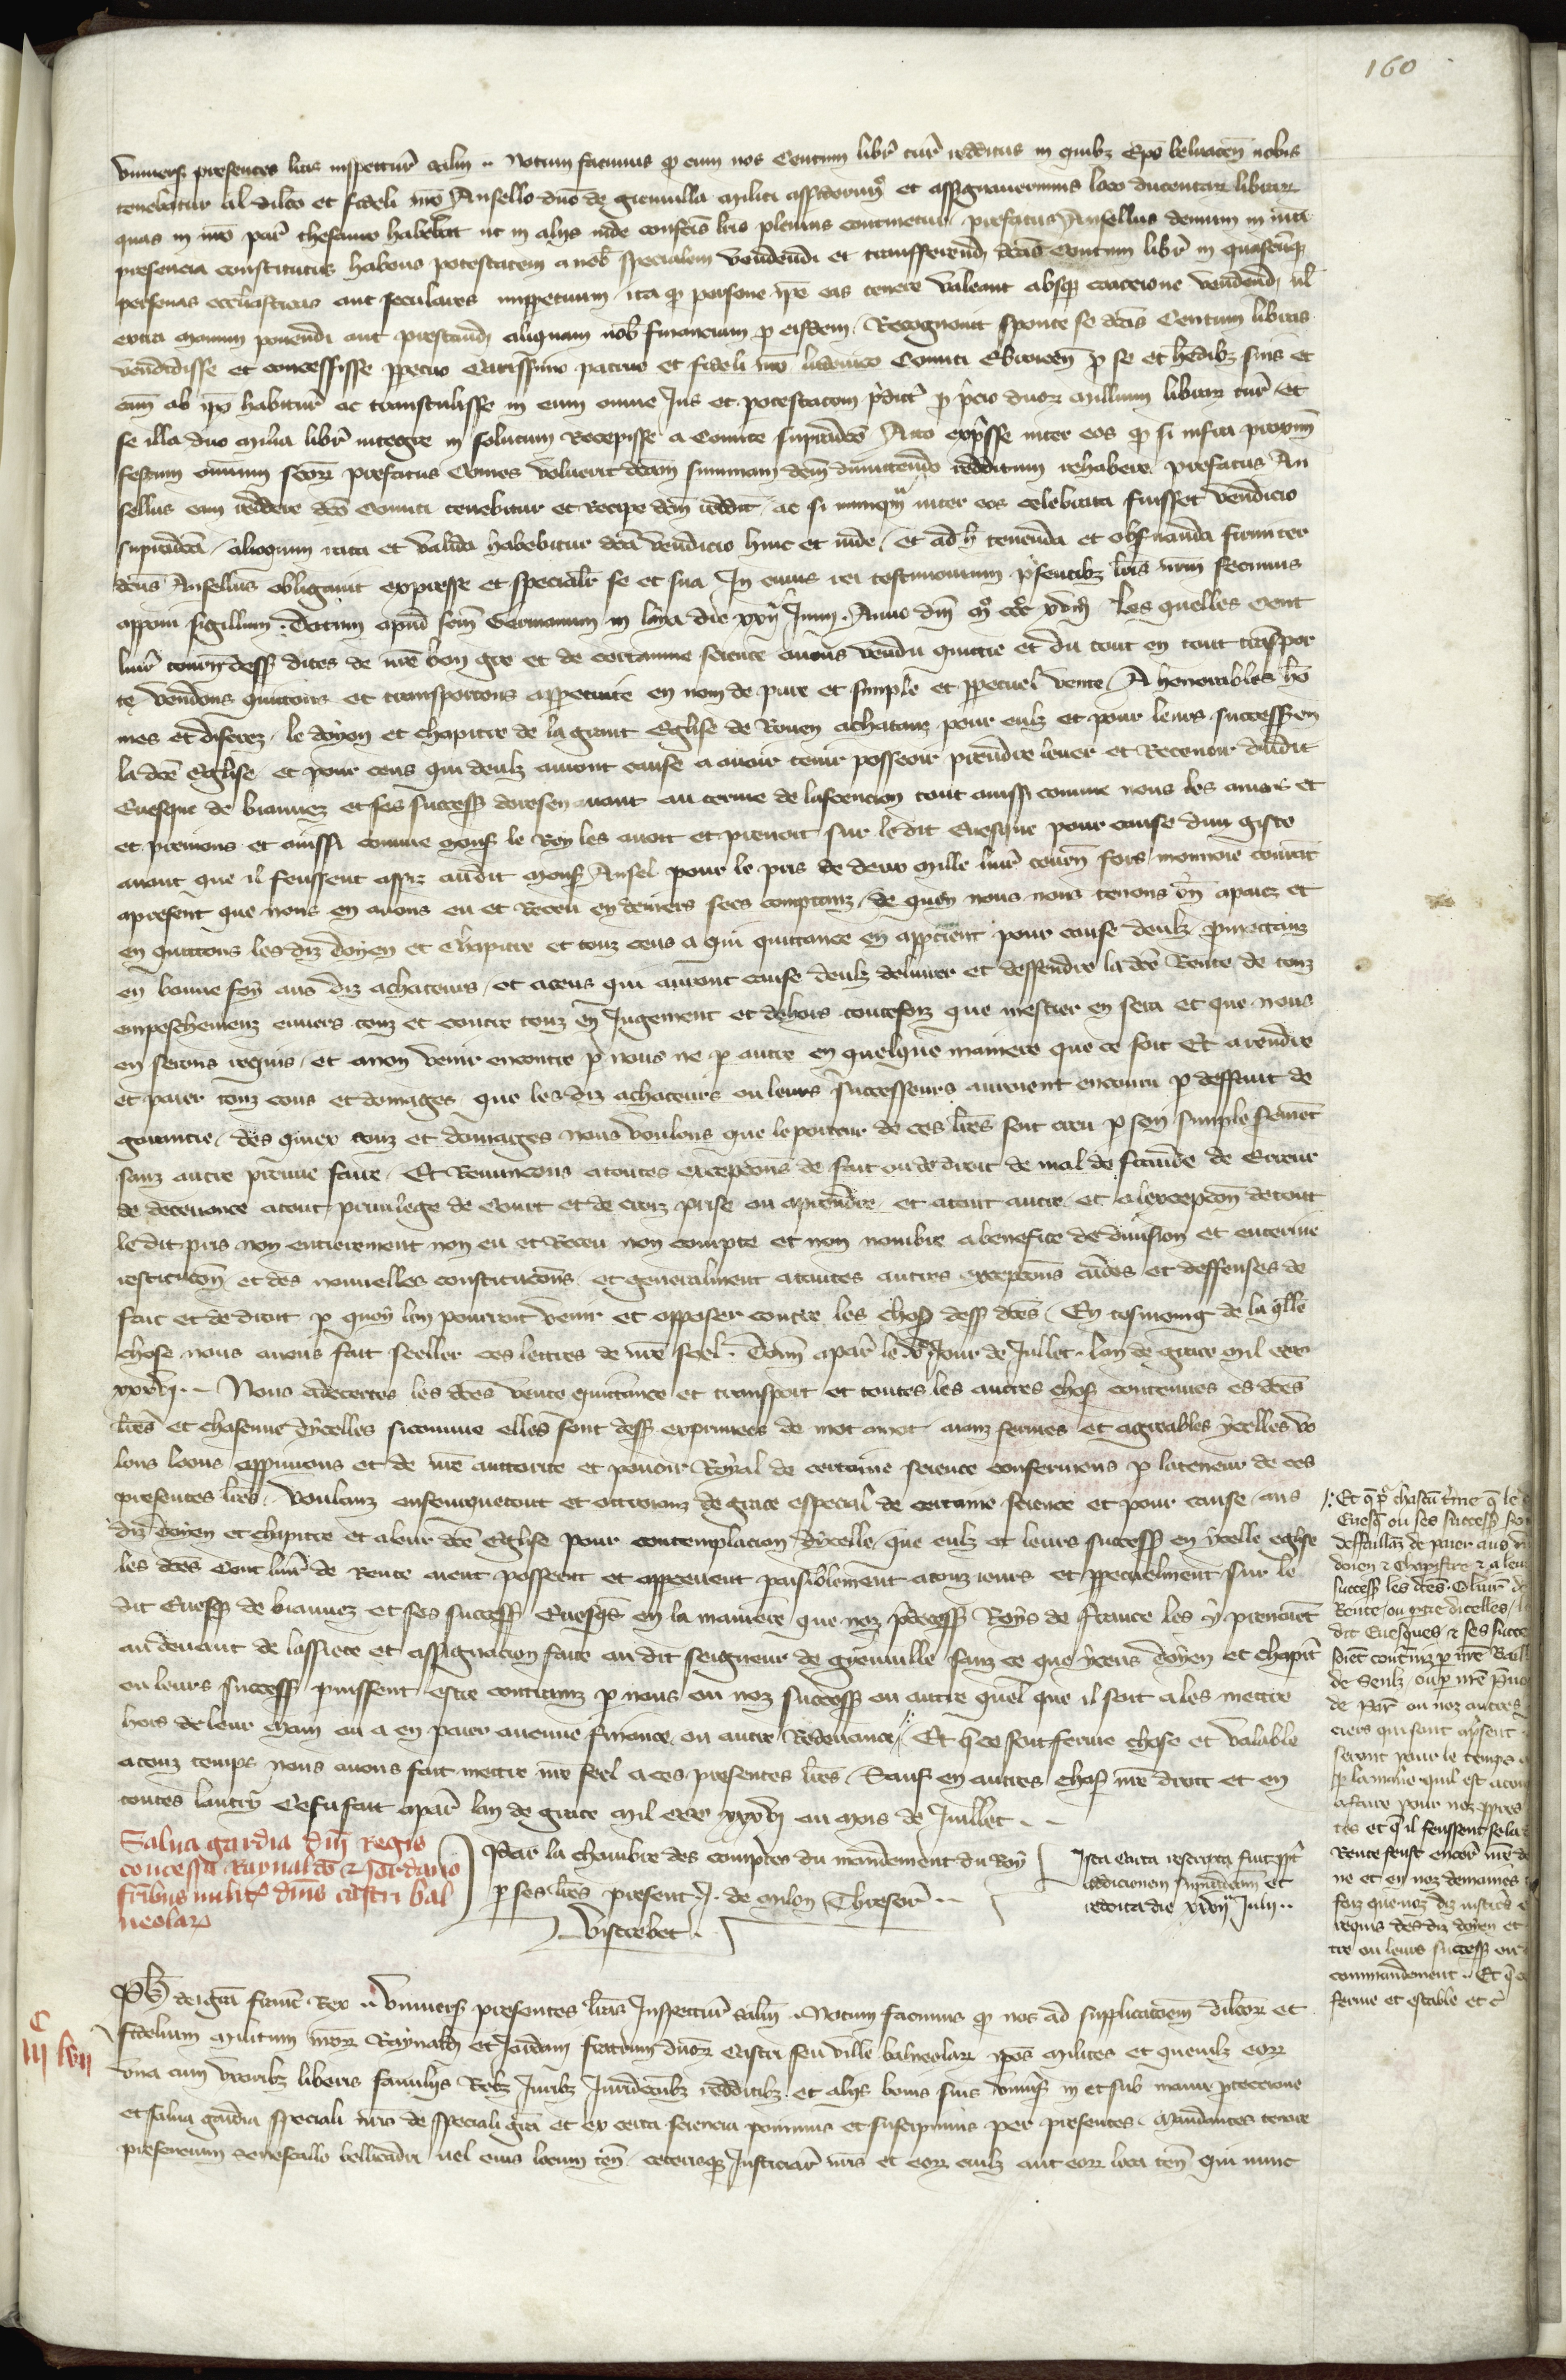 160
univers presentes litteras inspecturis salutem .. Notum facimus quod cum nos Centum libras turonenses redditus in quibus Episcopus belvacensis nobis
tenebatur dilecto et fideli nostro Ansello domino de Gienvilla militi assederimus et assignaverimus loco ducentarum librarum
quas in nostro parisius thesauro habebat ut in aliis inde confectis litteris plenius continetur prefatus Ansellus demum in nostra
presencia constitutus habens potestatem a nobis specialem vendendi et transferendi dictas Centum libras in quascunque
personas ecclesiasticas aut seculares imperpetuum ita quod persone ipse eas tenere valeant absque coactione vendendi vel
extra manum ponendi aut prestandi aliquam nobis financiam pro eisdem. Recognovit sponte se dictas Centum libras
vendidisse et concessisse perpetuo Carissimo patruo et fideli nostro ludovico Comiti Ebroicensi pro se et heredibus suis et
causam ab ipso habituris ac transtulisse in eum omne Jus et potestatem predictam pro precio duorum millium librarum turonensium Et
se illa duo milia librarum integre in solutum Recepisse a Comite supradicto Acto expresse inter eos quod si infra proximum
festum omnium sanctorum prefatus Comes voluerit dictam summam dictum dimittendo redditum rehabere prefatus An
sellus eam reddere dicto Comiti tenebitur et Recipere dictum redditum ac si nunquam inter eos celebrata fuisset vendicio
supradicta, alioquin rata et valida habebitur dicta vendicio hinc et inde, et ad hec tenenda et observanda firmiter
dictus Ansellus obligavit expresse et specialiter se et sua In cuius rei testimonium presentibus litteris nostrum fecimus
apponi sigillum. Datum apud sanctum Germanum in laya die xxii Junii. Anno domini mo ccco xviiio Les quelles Cent
livres tournois dessus dites de nostre bon gre et de certainne science avons vendu quitte et du tout en tout transpor
te vendons quittons et transportons apperpetuite en nom de pure et simple et perpetuel vente, A honorables ho
mes et discrez, le doyen et chapitre de la grant Eglise de Rouen achatanz pour eulz et pour leurs successeurs en
la dicte Eglise, et pour ceus qui deulz auront cause a avoir tenir posseoir prendre lever et Recevoir dudit
Evesque de biauvez et ses successeurs doresenavant au terme de lascencion tout aussi comme nous les aviens et
et prenions et aussi comme mons le Roy les avoit et prenoit sur le dit Evesque pour cause dun giste
avant que il feussent assis audit mons Ansel pour le pris de deux mille livres tournois fors monnoie courant
apresent que nous en avons eu et Receu en deniers secs comptanz, de quoy nous nous tenons bien apaiez et
en quittons les diz doyen et chapitre et touz ceus a qui quittance en appartient pour cause deulz, promettanz
en bonne foy aus diz achateurs, et aceus qui auront cause deulz delivrer et deffendre la dicte Rente de touz
empeschemenz envers touz et contre touz en Jugement et dehors toutefoiz que mestier en sera et que nous
en serons requis, et anon venir encontre par nous ne par autre en quelque maniere que ce soit Et arendre
et paier touz cous et domages que les diz achateurs ou leurs successeurs auroient encouru par deffaut de
garantie, des quiex couz et domaiges nous voulons que le porteur de ces lettres soit creu par son simple serment
sanz autre preuve faire, Et Renuncons atoutes excepcions de fait ou de droit de mal de fraude de Erreur
de decevance atout privilege de Court et de croiz prise ou aprendre et atout autre et alexcepcion detout
ledit pris non entierement non eu et Receu non compte et non nombre abenefice de division et enterine
restitucion et des nouvelles constitucions et generalment atoutes autres excepcions aides et deffenses de
fait et de droit par quoy len pourroit venir et opposer contre les choses dessus dictes, En tesmoing de la quelle
chose nous avons fait seeller ces lettres de nostre seel. Donne aparis le ve Jour de Juillet. lan de grace mil ccc
xxxvi. Nous adecertes les dictes vente quittance et transport et toutes les autres choses contenues es dictes
lettres et chascune dycelles sicomme elles sont dessus exprimees de mot amot aianz fermes et agreables ycelles vo
lons loons approuvons et de nostre auttorite et povoir Royal de certaine science confermons par lateneur de ces
presentes lettres, voulanz ensemquetout et octroianz de grace especial de certaine science et pour cause, aus
diz doyen et chapitre et aleur dicte Eglise pour contemplacion dycelle, que eulz et leurs successeurs en ycelle eglise
les dictes Cent livres de Rente aient posseent et apperceuent paisiblement atouz iours et perpetuelment sur le
dit Evesque de biauvez et ses successeurs Evesques en la maniere que noz predecesseurs Roys de france les y prenoient
au devant de lassiete et assignacion faite au dit seigneur de gyenville sanz ce que yceus doyen et chapitre
ou leurs successeurs puissent estre contrainz par nous ou noz successeurs ou autre quel que il soit ales mettre
hors de leur main ou a en paier aucune finance ou autre Redevance, Et que ce soit ferme chose et valable
atouz temps nous avons fait mettre nostre seel a ces presentes lettres, Sauf en autres choses nostre droit et en
toutes lautruy Ce fu fait aparis lan de grace mil ccc xxxvi ou mois de Juillet.
Par la chambre des comptes du mandement du Roy
par ses lettres present. J. de milon Thresorier
Vistrebet.
Ista Carta rescripta fuit propter
addicionem supradictam et
reddita die xxvii Julii ..
Et que pour chascun terme que le
Evesque ou ses successeurs
deffaillanz de paier aus
doien et Chapistre et a leur
successeurs les dictes. C livres de
Rente, ou partie dicelles,
dit Evesques, et ses succe
soient contrainz par nostre Bail
de Senliz ou par nostre prevo
de Paris ou noz autres
ciers qui sont apresent
seront pour le temps
par la maniere quil est acou
afaire pour noz propres
tes et que il feussent sela
Rente feust encore nostre de
ne et en noz demaines
foiz que noz diz justiciers
requis des diz doyen et
tre ou leurs successeurs ou
commandement. Et que
ferme et estable et c
Salva gardia domini Regis
concessa Raynaldo et Jordano
fratribus militibus dominis castri bal
neolarum
C
iiii lvii
Philippus dei gracia francorum Rex .. Universis presentes litteras Inspecturis salutem. Notum facimus quod nos ad supplicacionem dilectorum et
fidelium militum nostrorum Raynaldi et Jordani fratrum dominorum Castri seu ville balneolarum ipsos milites et quemlibet eorum
una cum uxoribus liberis familiis Rebus Juribus Jurisdictionibus redditibus et aliis bonis suis universis in et sub nostra protectione
et salva gardia speciali nostra de speciali gracia et ex certa sciencia ponimus et suscipimus per presentes. Mandantes tenore
presencium senescallo bellicadri vel eius locum tenenti ceterisque Justiciariis nostris et eorum cuilibet aut eorum loca tenentibus qui nunc